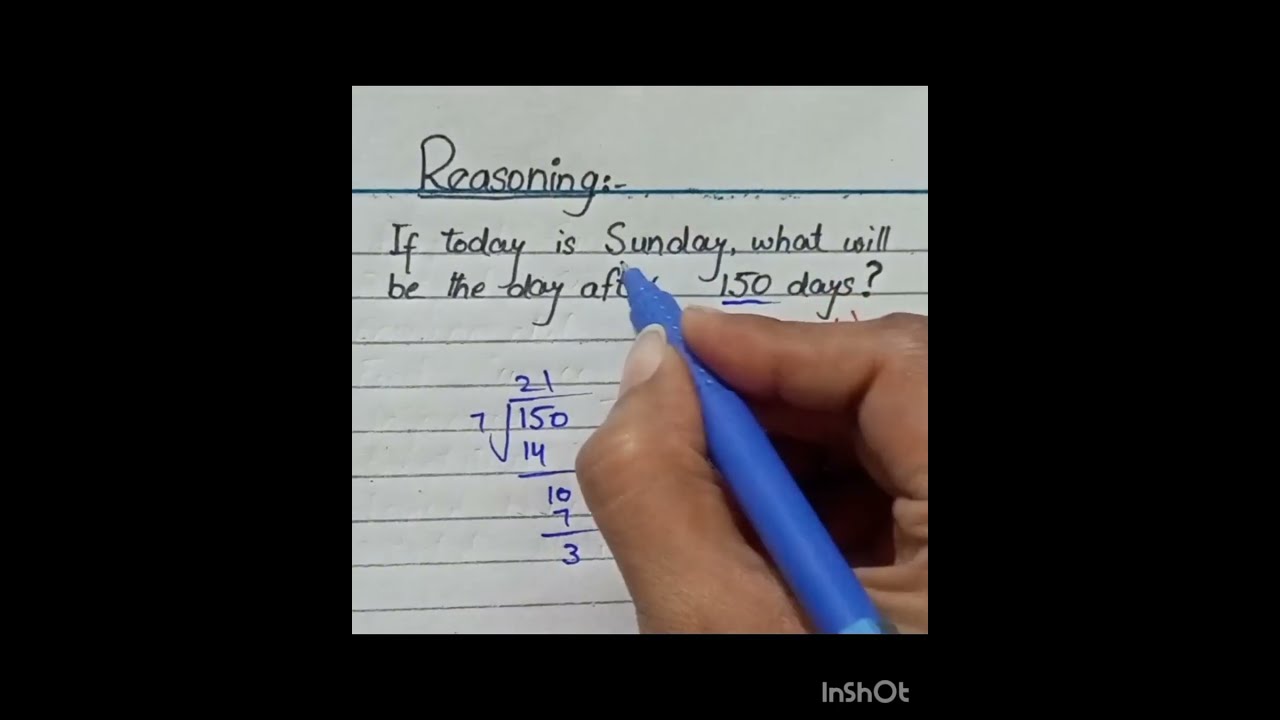 Reasoning:-
If today is Sunday, what will
be the day after 150 days?
21
7 150
14
10
7
3
InShOt